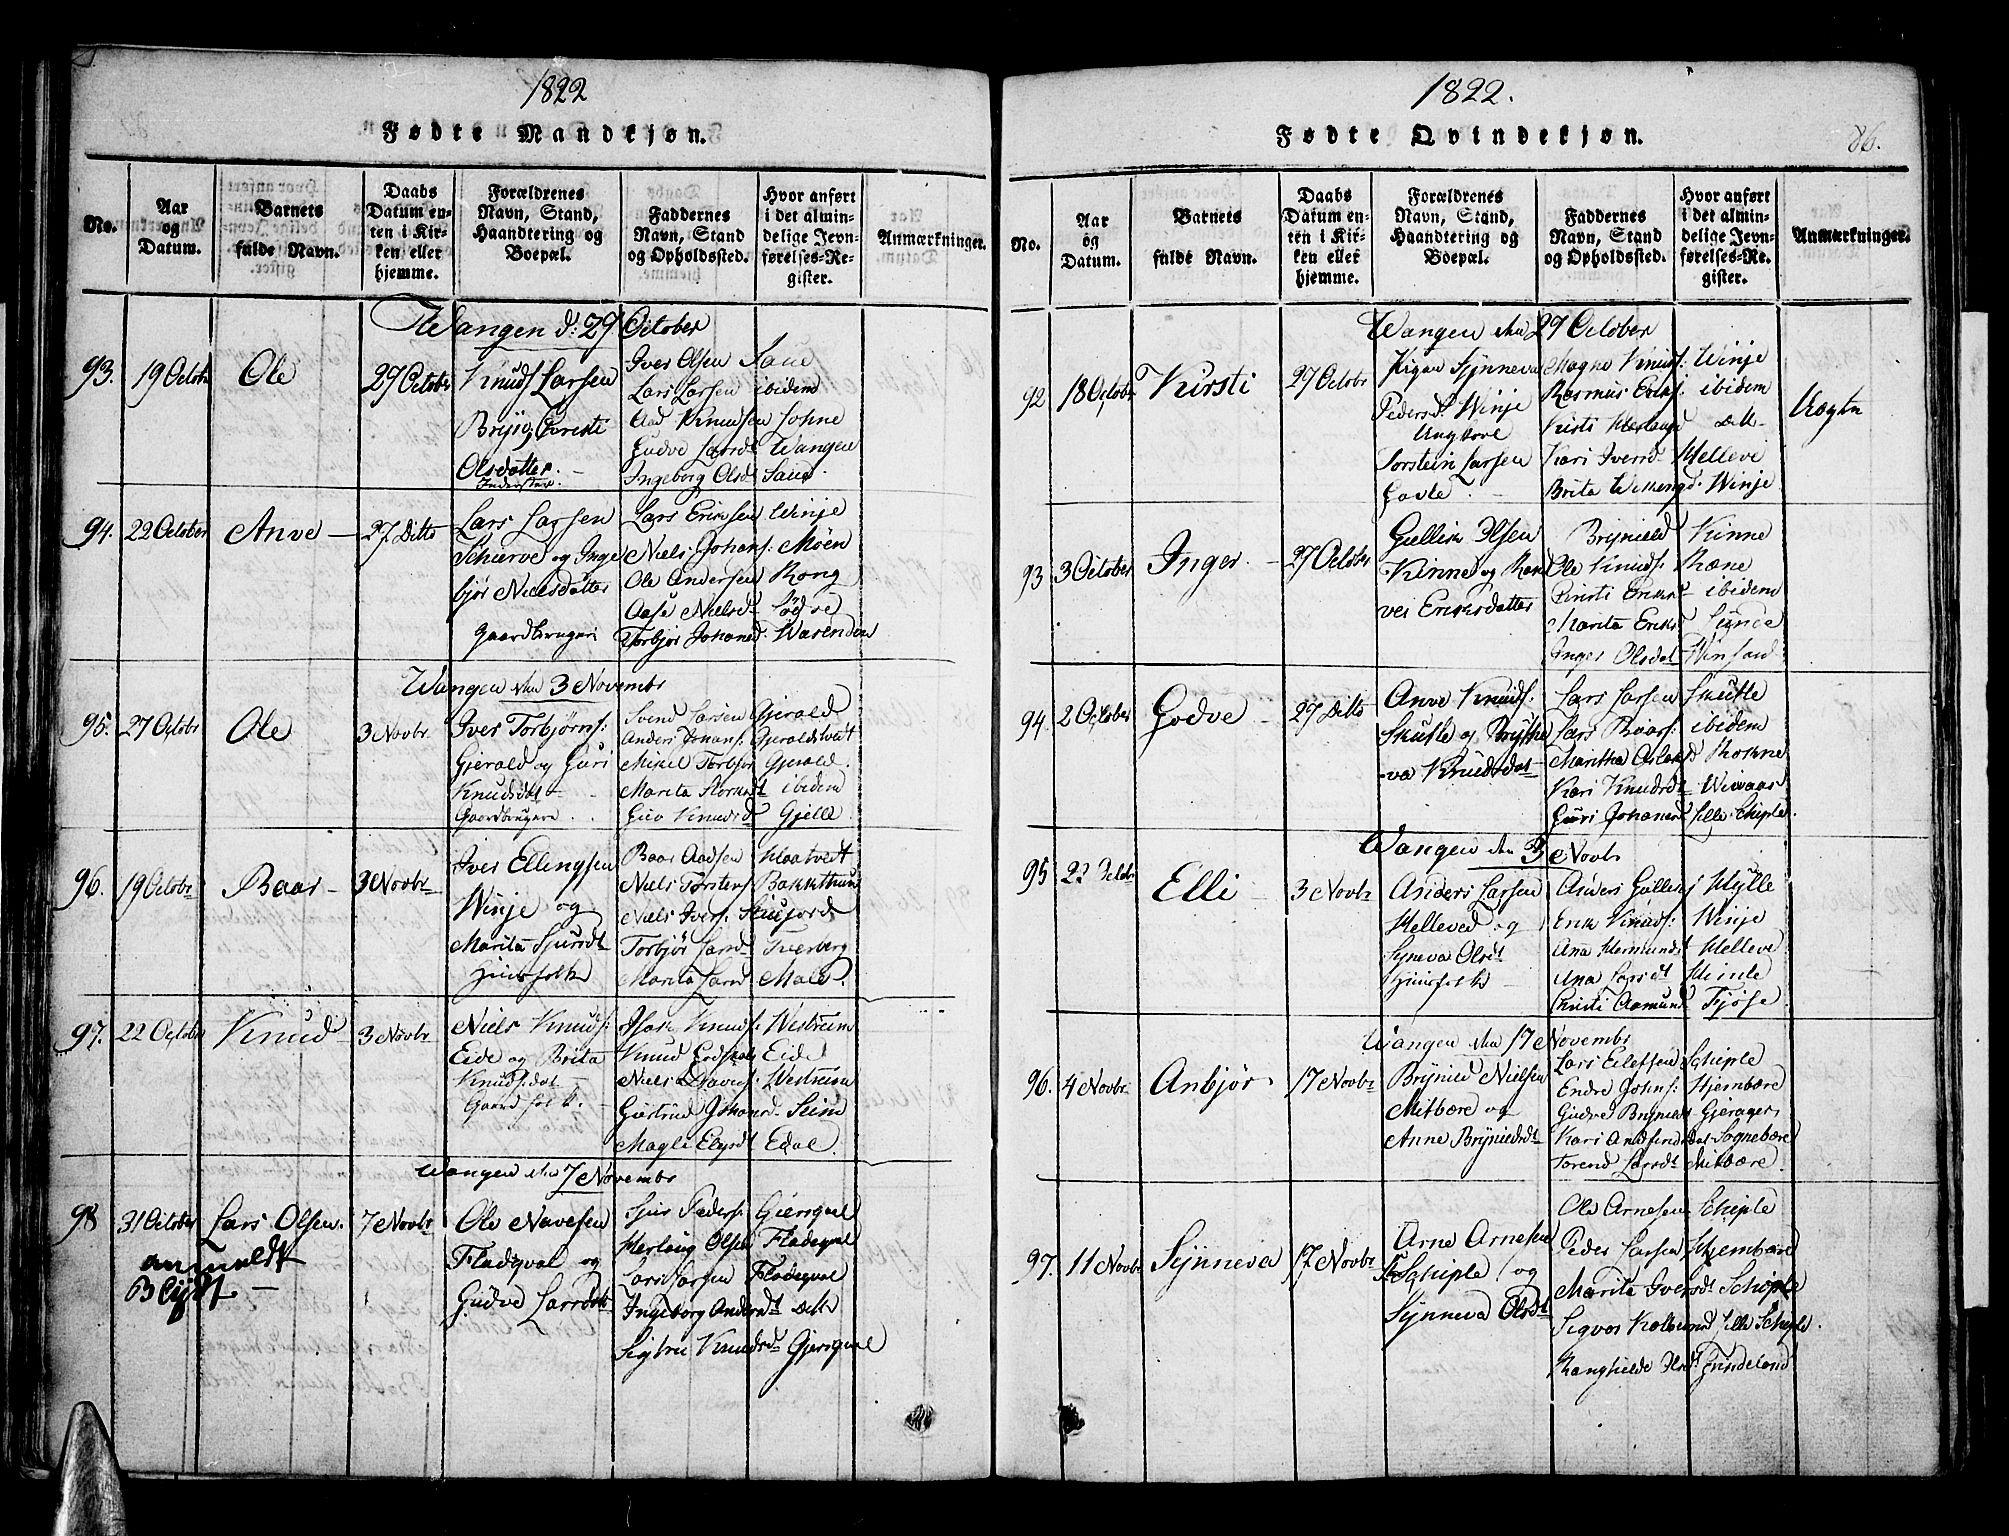 1822
Fødte Mandkjøn.
No.
Aar og Datum.
Barnets fulde Navn.
Daabs Datum enten i Kirken eller hjemme.
Forældrenes Navn, Stand, Haandtering og Boepæl.
Faddernes Navn, Stand og Opholdssted.
Hvor anført i det almindelige Jevnførelses-Register.
Anmærkninger.
Wangen d: 27 October
93. 19 Octobr Ole 27 October
Knud Larsen
Olsdatter.
Iver Olsen Saue
Lars Larsen ibidem
Aad Knudsen Lohne
Gudve Larsd Wangen
Ingeborg Olsd Saue
94. 22 October Anve 27 Ditto
Lars Larsen
Schierve og Inge
bjør Nielsdatter
Gaardbrugeri
Lars Eriksen Winje
Niels Johans: Møen
Ole Andersen Rong
Aase Nielsd
Torbjør Johansd. Warenden
Wangen den 3 Novembr
95. 27 Octobr Ole 3 Novbr
Iver Torbjørns:
Gjerald og Guri
Knudsdat
Gaardbrugere
Svend Larsen Gjerald
Anders Johans: Gjeraldstveit
Mikel Torbjør Gjerald.
Marita ibidem
Guro Knudsd Gjelle
96. 19 Octobr Baar 3 Novbr
Iver Ellingsen
Winje og
Marita Sjursdt
Huusfolk
Baar Aadsen
Niels Torstens Bakkethun
Niels Ivers: Skiefjord
Torbjør Larsd Tverberg
Marita Larsd Male
97. 22 Octobr Knud 3 Novbr
Niels Knuds:
Eide og Brita
Knudsdat
Gaardfolk.
Isak Knuds: Westreim
Knud Eide
Niels Davids: Westreim
Giertrud Johansd. Seim
Magli Edal
Wangen den 7 Novembr
98 31 October Lars Olsen. 7 Novbr
anmeldt
Ole Navesen
Fladqual og
Gudve Larsdt
Sjur Peders: Giersqual
Herlaug Olsen Fladeqval
Lars Larsen Fladeqval
Ingeborg Andersdt Ditto
Sigtru Knudsd. Gjersqual
1822.
86.
Fødte Qvindekjøn.
No.
Aar og Datum.
Barnets fulde Navn.
Daabs Datum enten i Kirken eller hjemme.
Forældrenes Navn, Stand, Haandtering og Boepæl.
Faddernes Navn, Stand og Opholdssted.
Hvor anført i det almindelige Jevnførelses-Register.
Anmærkninger.
Wangen den 27 October
92 18 Octobr Kirsti 27 Octobr
Pigen Synneva
Pedersd. Winje
Ungkare
Torstein Larsen
Magne Knuds: Winje
Rasmus Eriks: ibidem
Kirsti Herlaugsd Ditto
Kari Iversd Helleve
Brita Winje
Uægte
93 3 October Inger 27 October
Gullik Olsen
Kinne og Ran
vei Eriksdatter
Brynield Kinne
Ole Knuds: Ræne
Kirsti Eriksd ibidem
Marita Eriksd
Inger Olsdat
94. 2 October Godve 29 Ditto
Anve Knuds.
Skutle og
va Knudsdat
Lars Larsen Skutle
Lars Baars: ibidem
Maritha Rokne
Kari Knudsd Wivaas
Guri Johansd lille Schiple
Wangen den 3 Novbr
95 Elli 3 Novbr
Anders Larsen
Helleved og
Syneva Olsdt
Huusfolk
Anders Gulleks Hylle
Erik Knuds: Winje
Ana Hermundsdt Helleve
Ana Larsdt
Christi Aamund Fjøse
Wangen den 17 Novembr
96. 4 Novbr Anbjør 17 Novbr
Brynild Nielsen
Mitbøre og
Anne Brynieldsdt
Lars Eilefsen Schiple
Endre Johns: Hjembøre
Gudve Brynields Gjerager
Kari Sognebøre
Torend Larsdt Mitbøre
97. 11 Novbr Synneva 17 Novbr
Arne Arnesen
Schiple og
Synneva Olsdt
Ole Arnesen Schiple
Peder Larsen Hjembøre
Marita Iversdt Schiple
Sigvor lille Schiple
Ranghilde Olsdt Grindeland